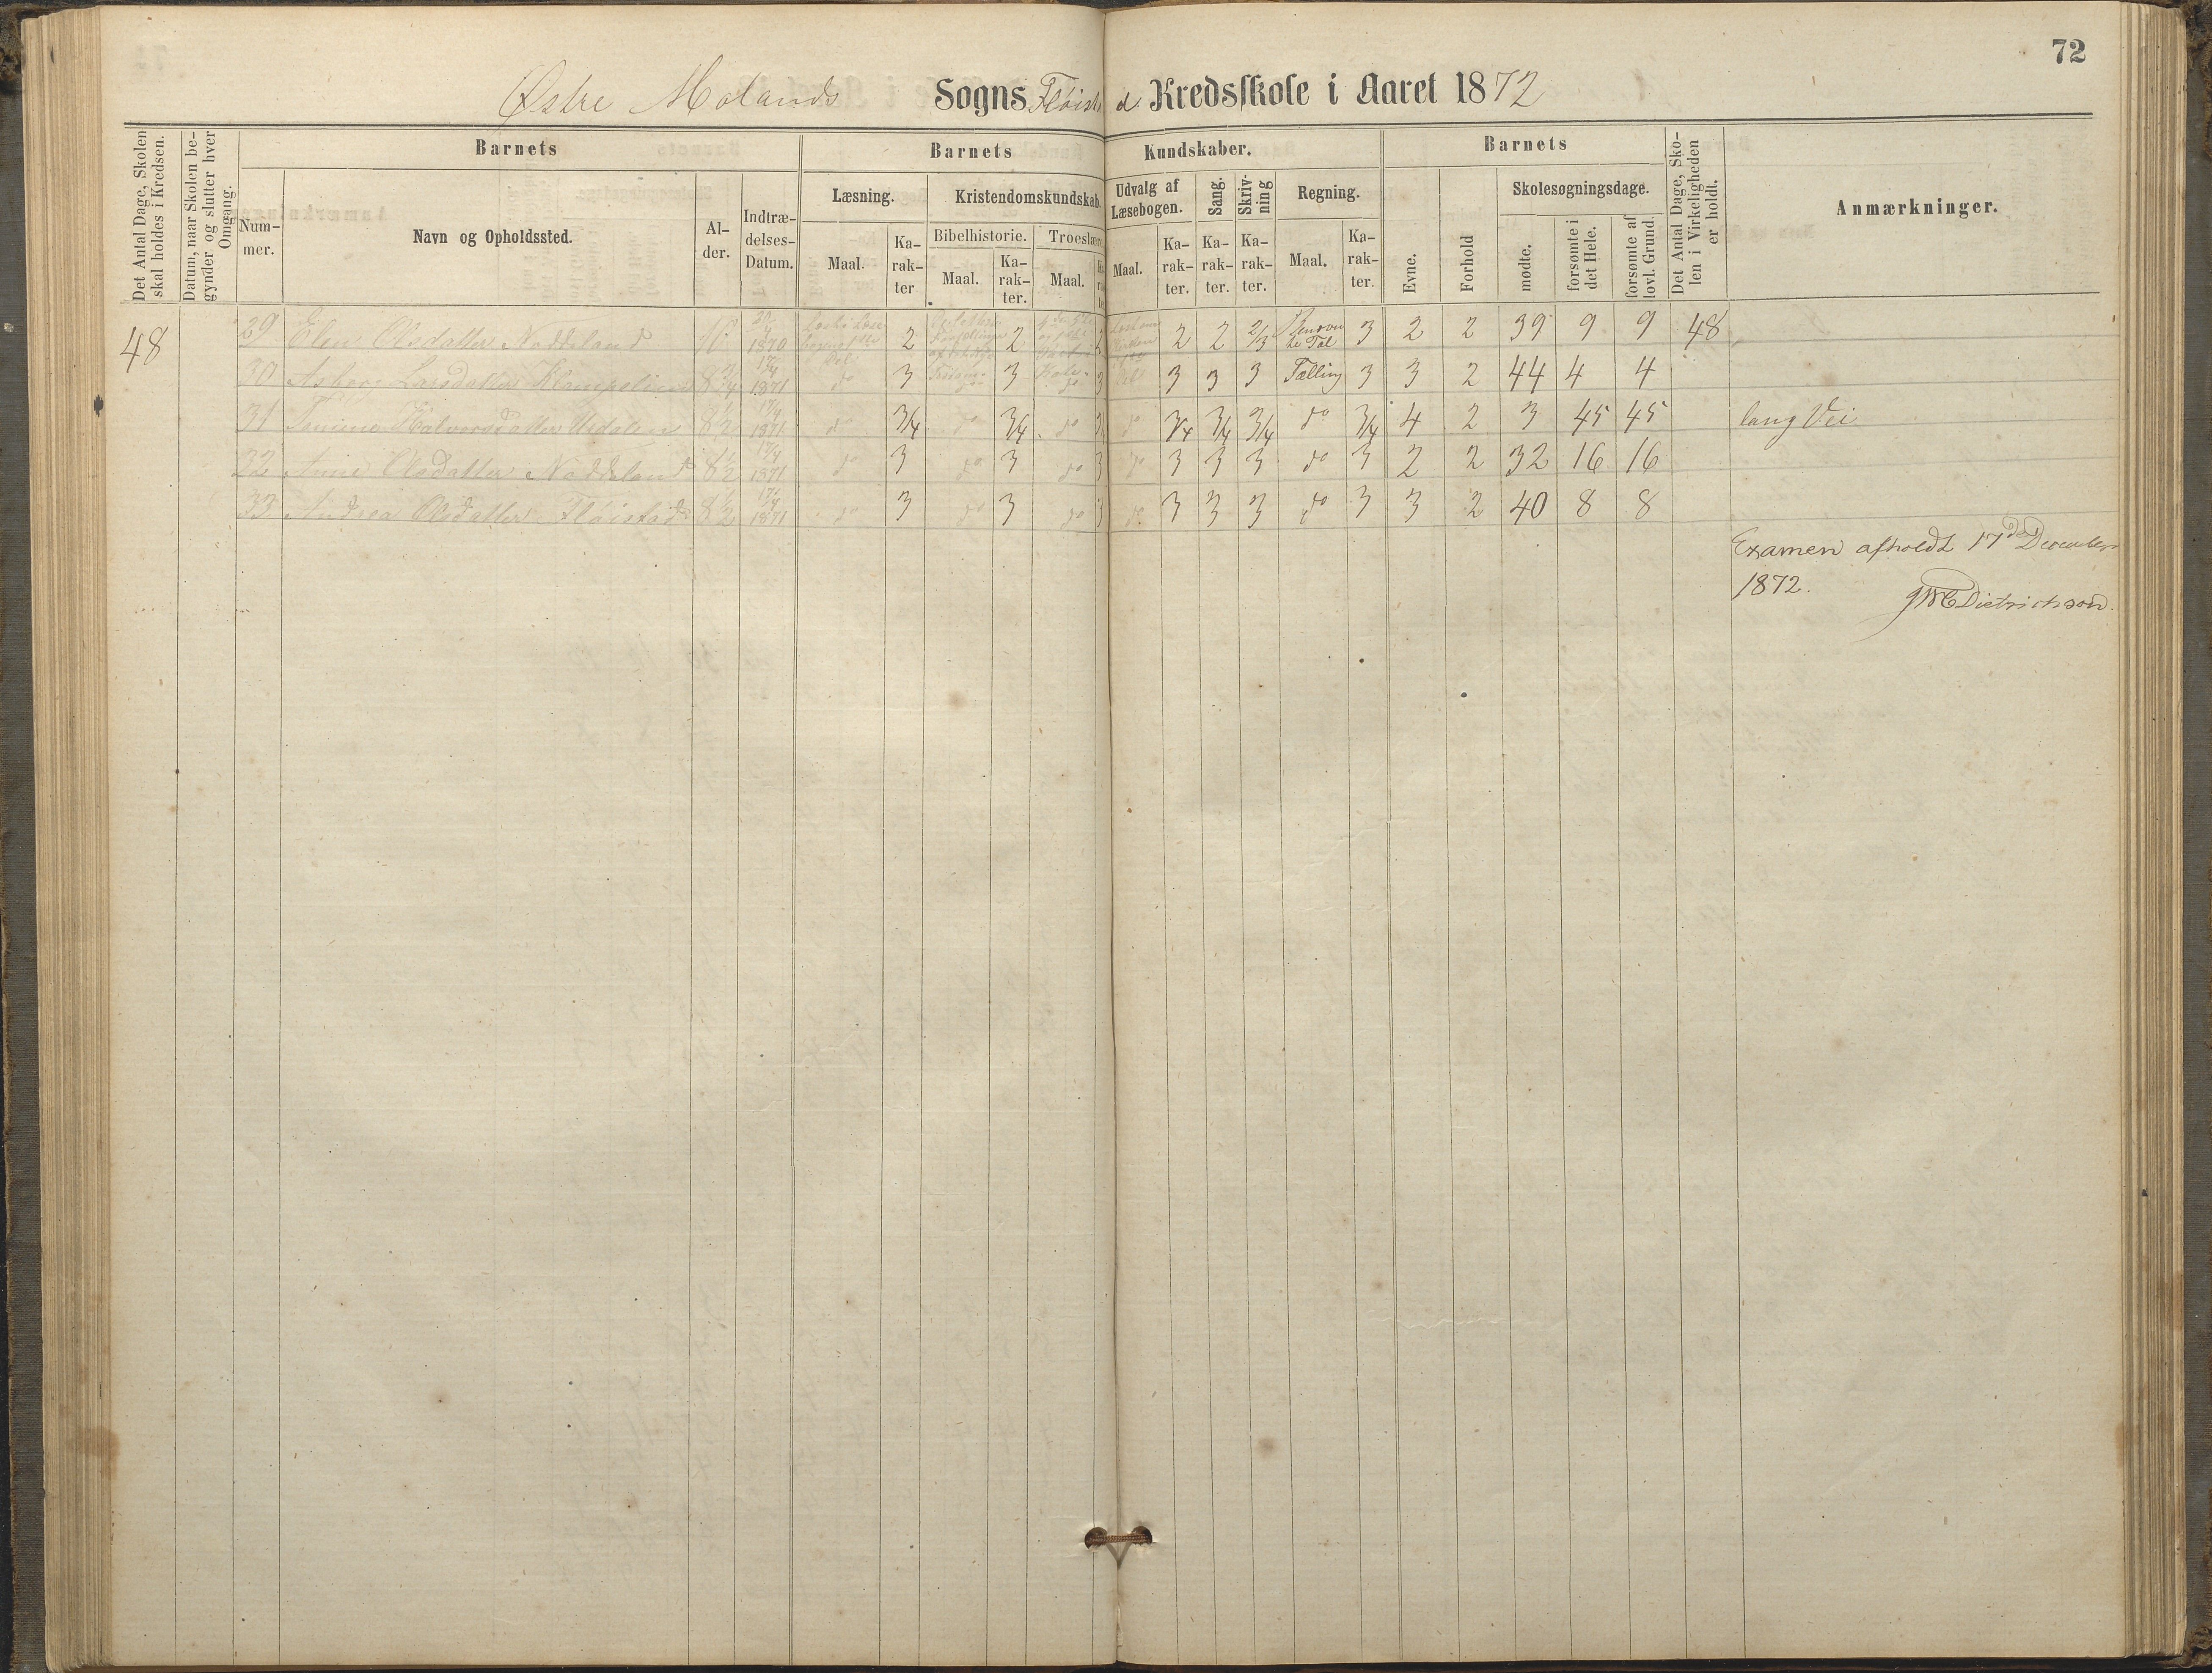 72
Østre Molands Sogns Fløistad Kredsskole i Aaret 1872
Det Antal Dage, Skolen skal holdes i Kredsen.
Datum, naar Skolen begynder og slutter hver Omgang.
Barnets
Nummer.
Navn og Opholdssted.
Alder.
Indtrædelses-Datum.
Barnets Kundskaber.
Læsning.
Maal.
Karakter
Kristendomskundskab.
Bibelhistorie.
Maal.
Karakter.
Troeslære
Maal.
Udvalg af Læsebogen.
Maal.
Karakter.
Sang.
Karakter.
Skrivning
Karakter.
Regning.
Maal.
Karakter.
Barnets
Evne.
Forhold
Skolesøgningsdage.
mødte.
forsømte i det Hele.
forsømte af lovl. Grund.
Det Antal Dage, Skolen i Virkeligheden er holdt.
Anmærkninger.
48 29 Elen Olsdatter Noddeland 1870 2 2 2 2 2 2/3 Tal 3 2 2 39 9 9 48
30 Larsdatter 8 3/4 17/4 1871 do 3 3 3 3 3 3 Tælling 3 3 2 44 4 4
31 Halvorsdatter Uedalen 8 1/2 17/4 1871 do 3/4 do 3/4 do 3/4 do 3/4 3/4 3/4 do 3/4 4 2 3 45 45 lang Vei
32 Anne Olsdatter Noddeland 8 1/2 17/4 1871 do 3 do 3 do 3 do 3 3 3 do 3 2 2 32 16 16
33 Andrea Olsdatter Fløistad 8 1/2 17/4 1871 do 3 do 3 do 3 do 3 3 3 do 3 3 2 40 8 8
Examen afholdt 17de December
1872.
JWCDietrichson.